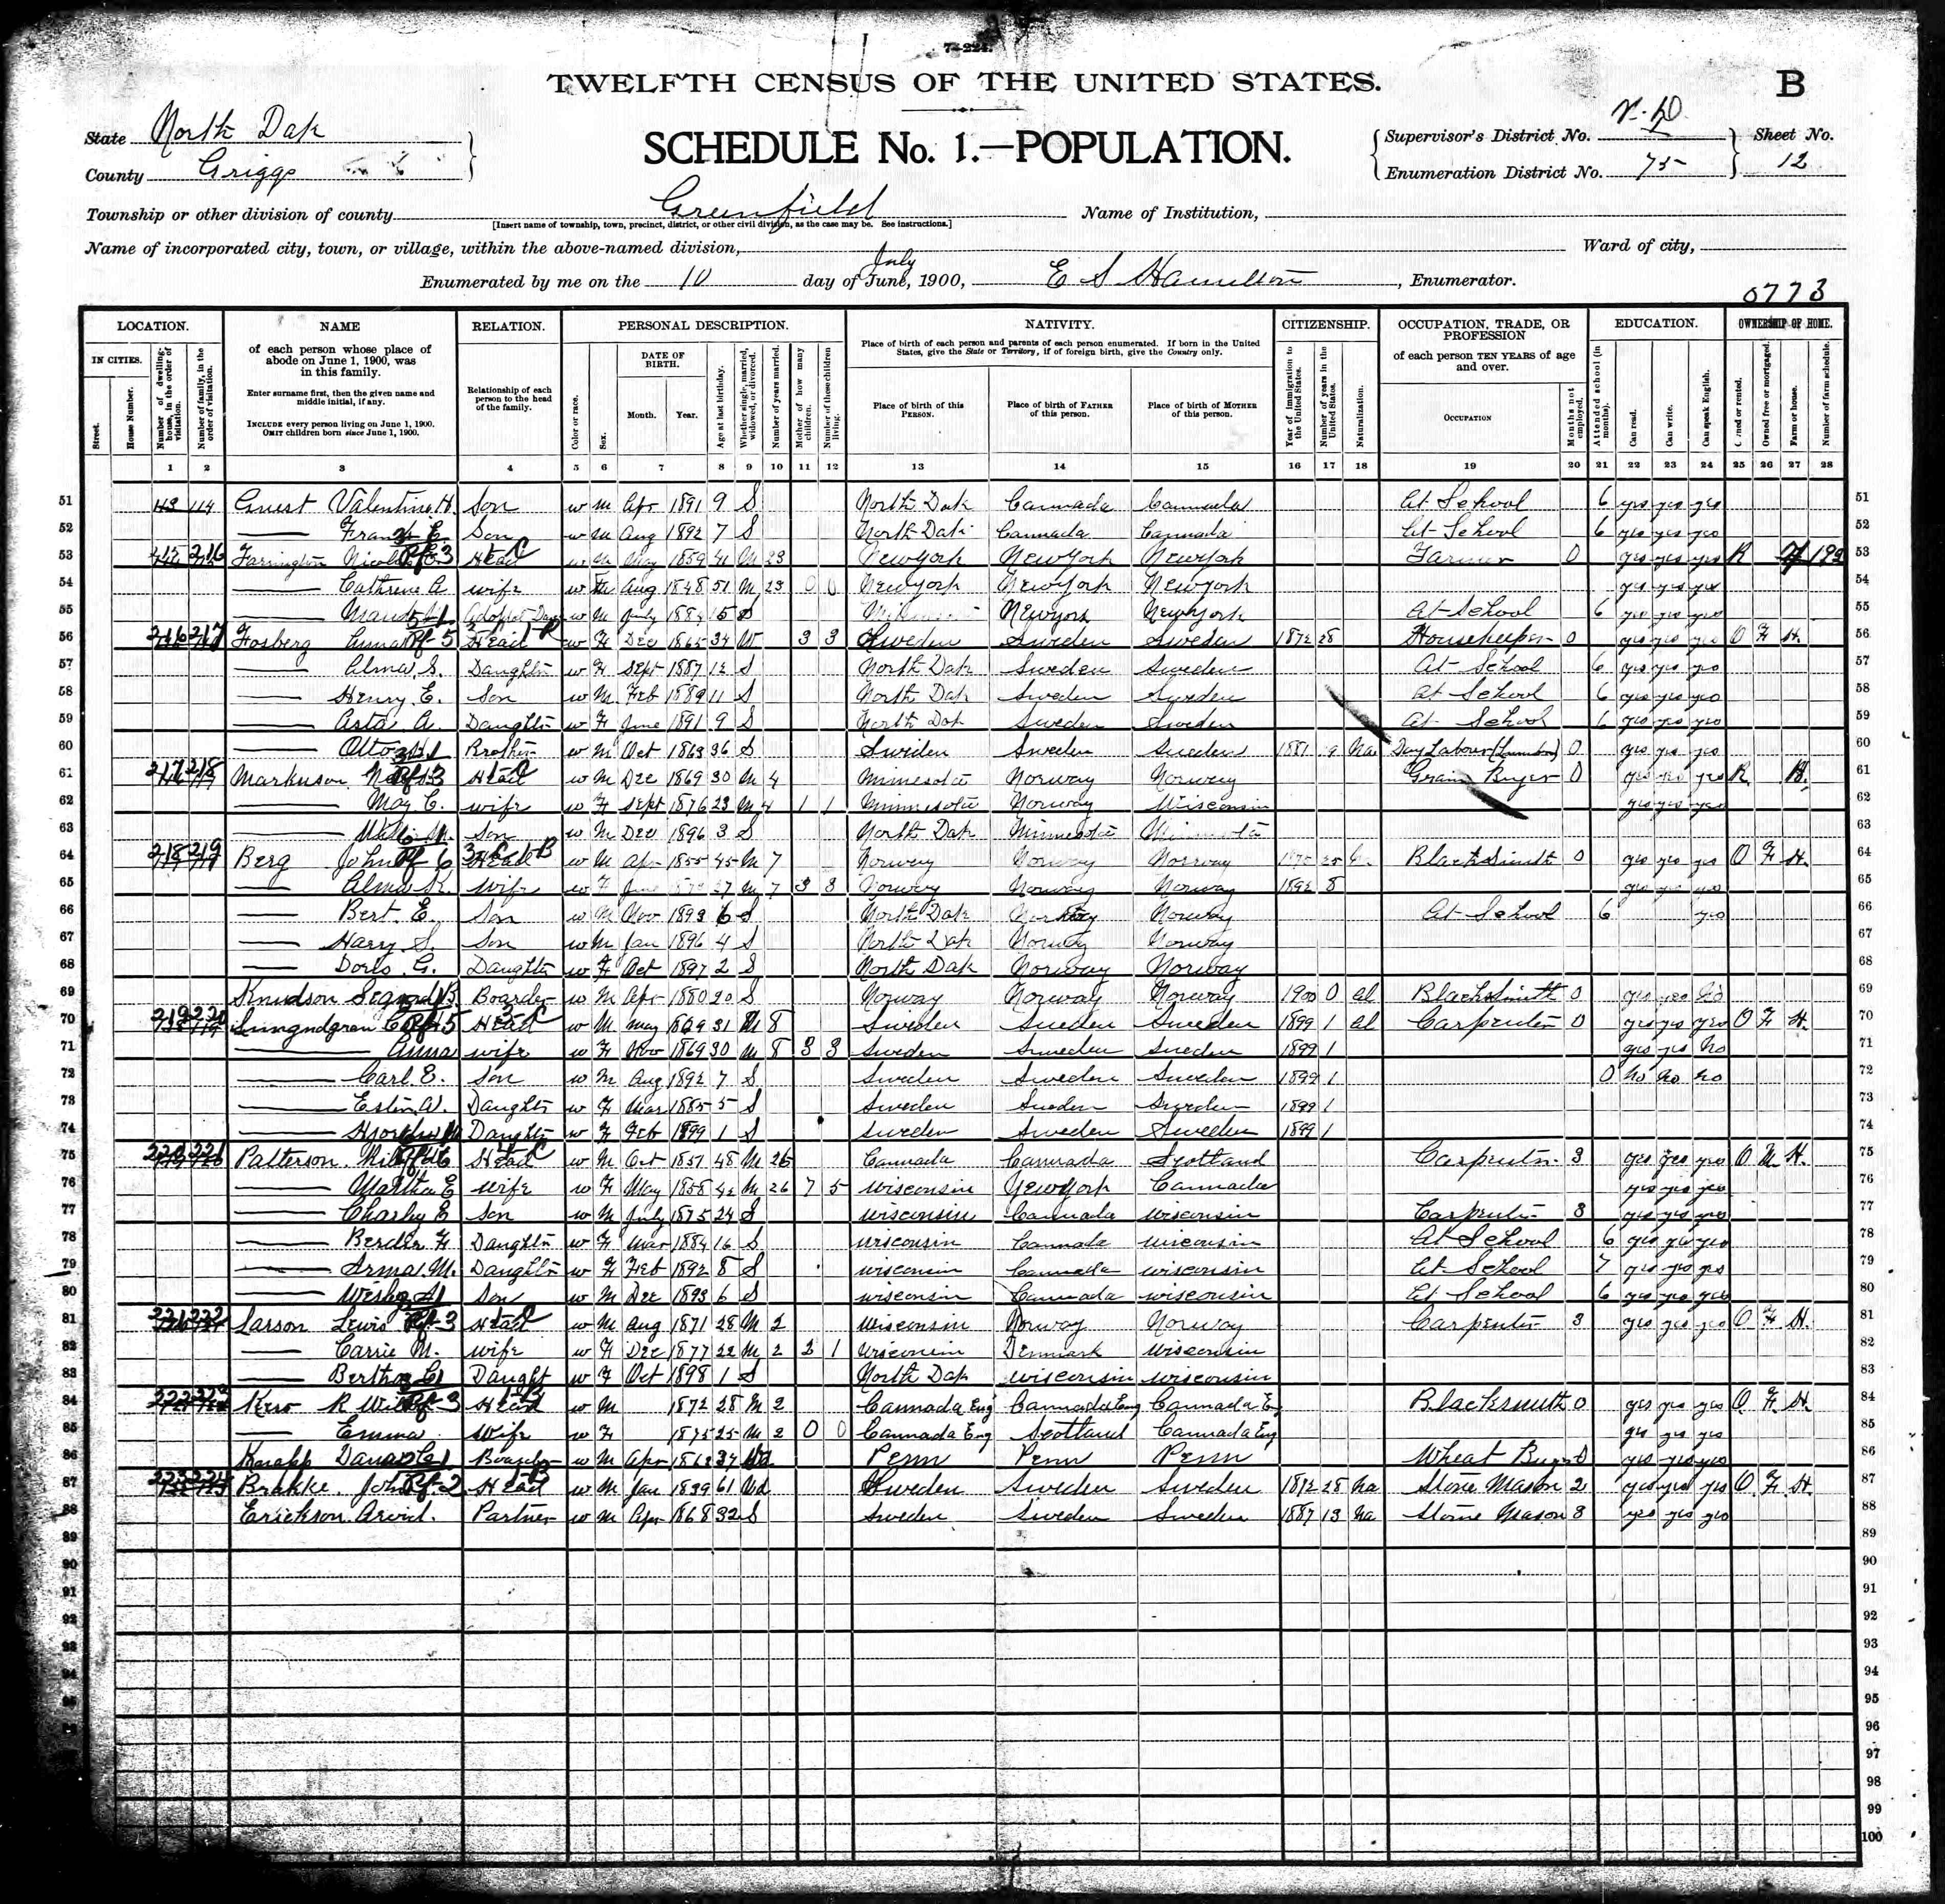 7-224.
TWELFTH CENSUS OF THE UNITED STATES.
B
State North Dak
SCHEDULE No. 1.—POPULATION.
Supervisor's District No. N.D. Sheet No.
County Griggs
Enumeration District No. 75 12
Township or other division of county Greenfield Name of Institution,
[Insert name of township, town, precinct, district, or other civil division, as the case may be. See instructions.]
Name of incorporated city, town, or village, within the above-named division, Ward of city,
July
Enumerated by me on the 10 day of June, 1900, E S Hamilton, Enumerator.
0773
LOCATION. NAME RELATION. PERSONAL DESCRIPTION. NATIVITY. CITIZENSHIP. OCCUPATION, TRADE, OR PROFESSION EDUCATION. OWNERSHIP OF HOME.
IN CITIES. Street. House Number. Number of dwelling-house, in the order of visitation. Number of family, in the order of visitation.
of each person whose place of abode on June 1, 1900, was in this family.
Enter surname first, then the given name and middle initial, if any.
INCLUDE every person living on June 1, 1900. OMIT children born since June 1, 1900.
Relationship of each person to the head of the family.
Color or race. Sex. DATE OF BIRTH. Month. Year. Age at last birthday. Whether single, married, widowed, or divorced. Number of years married. Mother of how many children. Number of these children living.
Place of birth of each person and parents of each person enumerated. If born in the United States, give the State or Territory, if of foreign birth, give the Country only.
Place of birth of this PERSON. Place of birth of FATHER of this person. Place of birth of MOTHER of this person.
Year of immigration to the United States. Number of years in the United States. Naturalization.
of each person TEN YEARS of age and over.
OCCUPATION Months not employed.
Attended school (in months). Can read. Can write. Can speak English.
Owned or rented. Owned free or mortgaged. Farm or house. Number of farm schedule.
1 2 3 4 5 6 7 8 9 10 11 12 13 14 15 16 17 18 19 20 21 22 23 24 25 26 27 28
51 Guest Valentine H. Son w M Apr 1891 9 S North Dak Cannada Cannada At School 6 yes yes yes 51
52 Frank E. Son w M Aug 1892 7 S North Dak Cannada Cannada At School 6 yes yes yes 52
53 216 Farrington Head w M May 1859 41 M 23 Newyork Newyork Newyork Farmer 0 yes yes yes R 53
54 Cathrine A wife w F Aug 1848 51 M 23 0 0 Newyork Newyork Newyork yes yes yes 54
55 w M July 1884 15 S Newyork Newyork At School 6 yes yes yes 55
56 216 217 Fosberg Anna Head w F Dec 1865 34 W 3 3 Sweden Sweden Sweden 1872 28 Housekeeper 0 yes yes yes O F H. 56
57 Alma S. Daughter w F Sept 1887 12 S North Dak Sweden Sweden At School 6 yes yes yes 57
58 Henry E. Son w M Feb 1889 11 S North Dak Sweden Sweden At School 6 yes yes yes 58
59 Arta A. Daughter w F June 1891 9 S North Dak Sweden Sweden At School 6 yes yes yes 59
60 Otto Brother w M Oct 1863 36 S Sweden Sweden Sweden 1881 9 Na Day Labour 0 yes yes yes 60
61 217 218 Markuson Head w M Dec 1869 30 M 4 Minnesota Norway Norway Grain Buyer 0 yes yes yes R H. 61
62 May C. wife w F Sept 1876 23 M 4 1 1 Minnesota Norway Wisconsin yes yes yes 62
63 Son w M Dec 1896 3 S North Dak Minnesota Minnesota 63
64 218 219 Berg John Head w M Apr 1855 45 M 7 Norway Norway Norway Blacksmith 0 yes yes yes O F H. 64
65 Alma K. wife w F June 27 M 7 3 3 Norway Norway Norway 1892 8 yes yes yes 65
66 Bert E. Son w M Nov 1893 6 S North Dak Norway Norway At School 6 yes 66
67 Harry S. Son w M Jan 1896 4 S North Dak Norway Norway 67
68 Doris G. Daughter w F Oct 1897 2 S North Dak Norway Norway 68
69 Knudson Boarder w M Apr 1880 20 S Norway Norway Norway 1900 0 Al Blacksmith 0 yes yes No 69
70 219 220 Head w M May 1869 31 M 8 Sweden Sweden Sweden 1899 1 Al Carpenter 0 yes yes yes O F H. 70
71 Anna wife w F Nov 1869 30 M 8 3 3 Sweden Sweden Sweden 1899 1 yes yes No 71
72 Carl E. Son w M Aug 1892 7 S Sweden Sweden Sweden 1899 1 0 No No No 72
73 Daughter w F Mar 1885 5 S Sweden Sweden Sweden 1899 1 73
74 Daughter w F Feb 1899 1 S Sweden Sweden Sweden 1899 1 74
75 220 221 Patterson Head w M Oct 1851 48 M 26 Cannada Cannada Scotland Carpenter 3 yes yes yes O M H. 75
76 Martha E wife w F May 1858 42 M 26 7 5 Wisconsin Newyork Cannada yes yes yes 76
77 Charley E Son w M July 1875 24 S Wisconsin Cannada Wisconsin Carpenter 3 yes yes yes 77
78 F Daughter w F Mar 1884 16 S Wisconsin Cannada Wisconsin At School 6 yes yes yes 78
79 Irma M. Daughter w F Feb 1892 8 S Wisconsin Cannada Wisconsin At School 7 yes yes yes 79
80 Son w M Dec 1893 6 S Wisconsin Cannada Wisconsin At School 6 yes yes yes 80
81 221 222 Larson Lewis Head w M Aug 1871 28 M 2 Wisconsin Norway Norway Carpenter 3 yes yes yes O F H. 81
82 Carrie M. wife w F Dec 1877 22 M 2 1 Wisconsin Denmark Wisconsin 82
83 Bertha Daught w F Oct 1898 1 S North Dak Wisconsin Wisconsin 83
84 222 223 R Head w M 1872 28 M 2 Cannada Eng Cannada Eng Cannada E Blacksmith 0 yes yes yes O F H. 84
85 Emma Wife w F 1875 25 M 2 0 0 Cannada Eng Scotland Cannada Eng yes yes yes 85
86 Knapp Boarder w M Apr Wd Penn Penn Penn Wheat 0 yes yes yes 86
87 223 224 Brekke John Head w M Jan 1839 61 Wd Sweden Sweden Sweden 1872 28 Na Stone Mason 2 yes yes yes O F H. 87
88 Erickson Arvid. Partner w M Apr 1868 32 S Sweden Sweden Sweden 1887 13 Na Stone Mason 3 yes yes yes 88
89 89
90 90
91 91
92 92
93 93
94 94
95 95
96 96
97 97
98 98
99 99
100 100